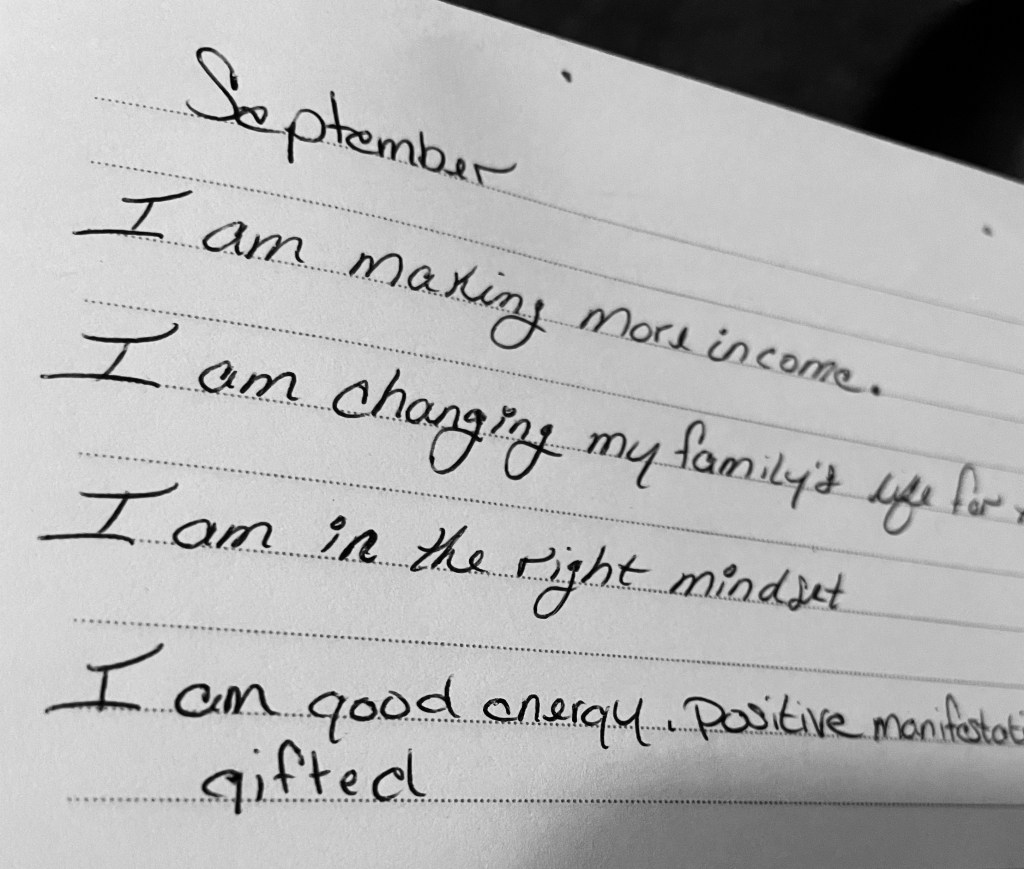 September
I am making more income.
I am changing my family's life for
I am in the right mindset
I am good energy. Positive
gifted